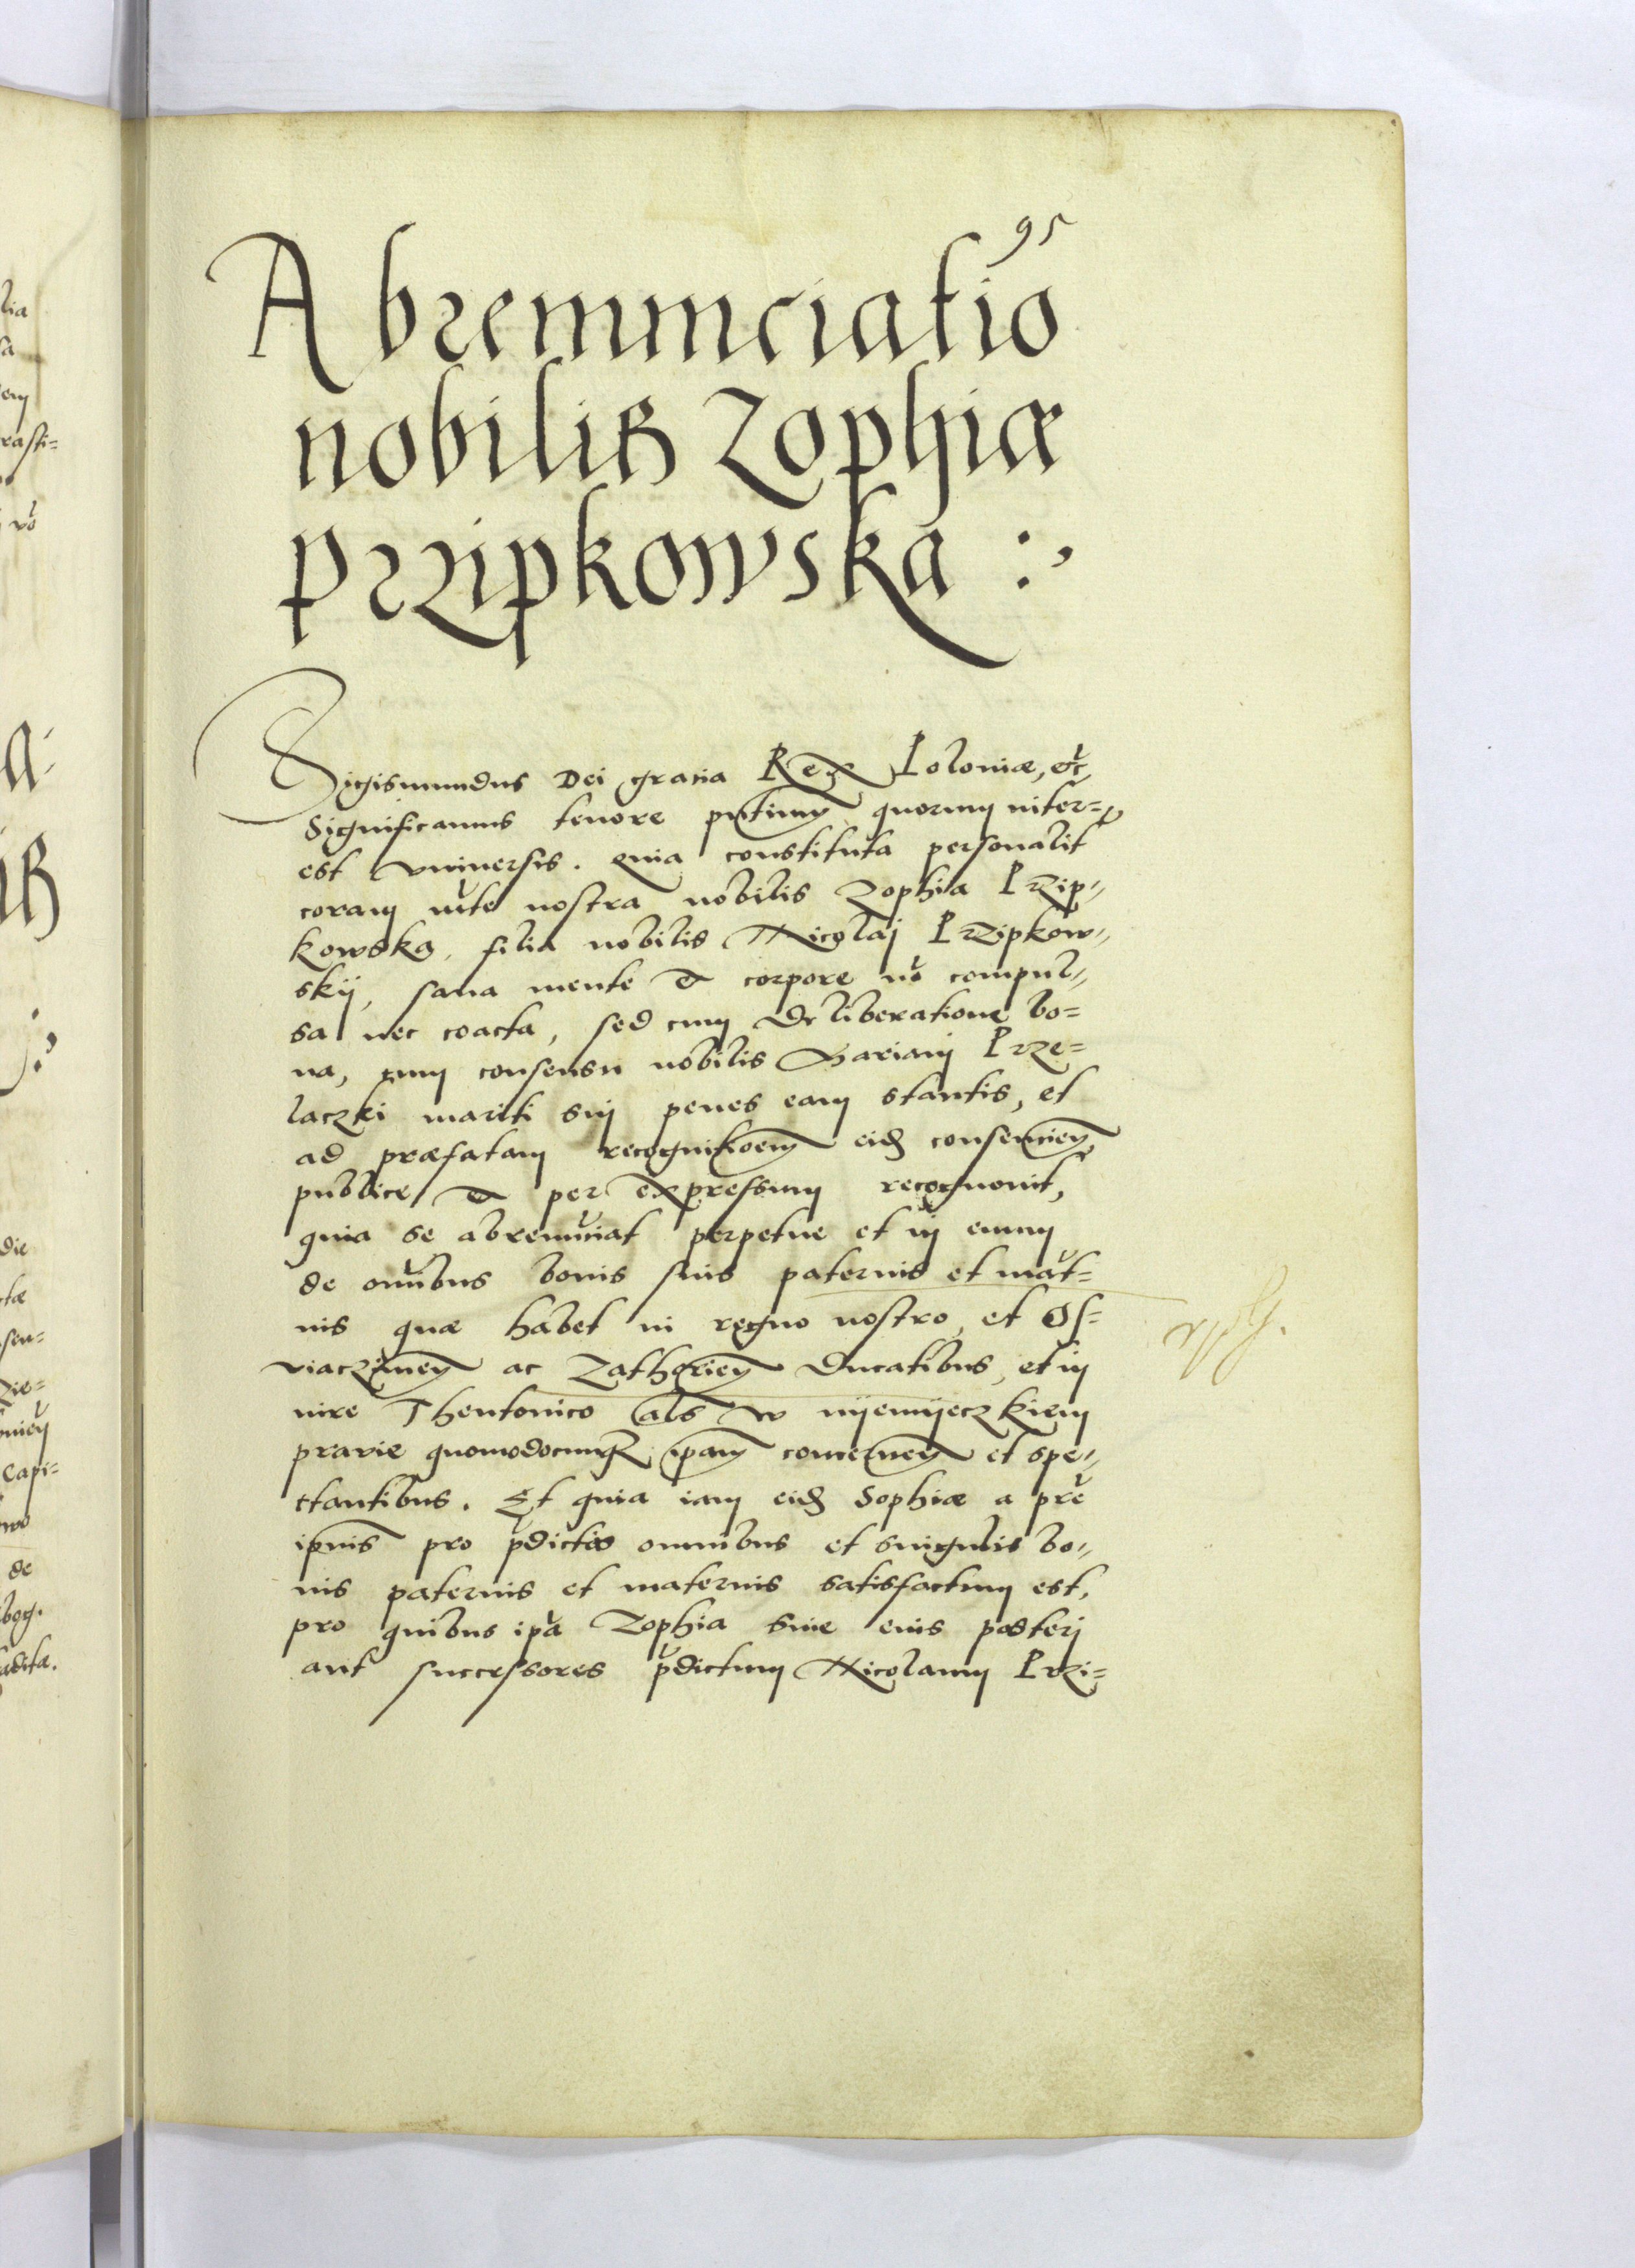 95
Abrenunciatio
nobilis Zophiæ
Przipkowska :,
Sigismundus Dei gratia Rex Poloniæ, etc̃
Significamus tenore pñtium quorum inter=
est vniversis. Quia constituta personalit̃
coram mte nostra nobilis Zophia Przip„
kowska, filia nobilis Nicolai Przipkow„
skij, sana mente & corpore nõ compul„
sa nec coacta, sed cum deliberatione bo=
na, cum consensu nobilis Mariani Prze=
laczki mariti sui penes eam stantis, et
ad præfatam recognitioem eid3 consencien̄
publice & per expressum recognouit,
quia se abrenũciat perpetue et in euum
de omĩbus bonis suis paternis et mat̃=
nis quæ habet in regno nostro, et Os=
viaczimen̄ ac Zathorien̄ Ducatibus, et in
iure Theutonico als w nijemijeczkiem
prawie quomodocunq3 ipam concernen̄ et spe„
ctantibus. Et quia iam eid3 Sophiæ a pre
ipius pro p̃dictis omnibus et singulis bo„
nis paternis et maternis satisfactum est,
pro quibus ipã Zophia siue eius posteri
aut successores p̃dictum Nicolaum Przi=